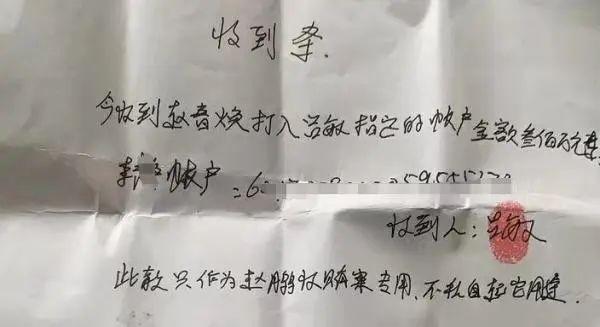 收到条.
今收到赵春焕打入吕敏指定的帐户金额叁佰万元整
李 帐户:6
收到人:吕敏
此款只作为赵鹏 案专用、不私自起它用途.